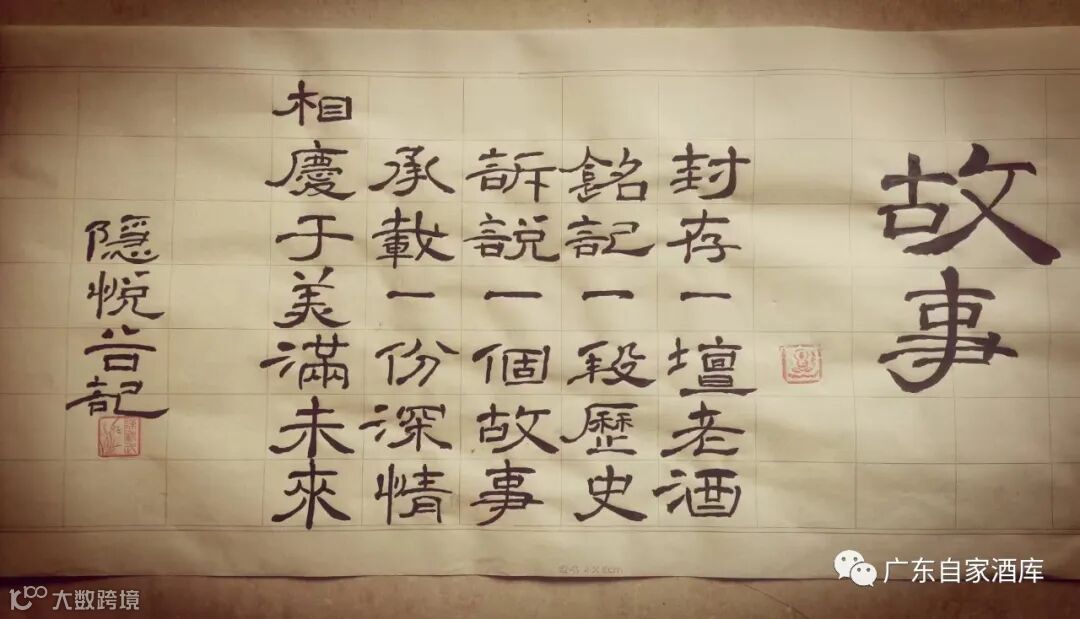 故事
封存一壇老酒
銘記一段歷史
訴説一個故事
承載一份深情
相慶于美滿未來
隱悦谷記
广东自家酒库
大数跨境